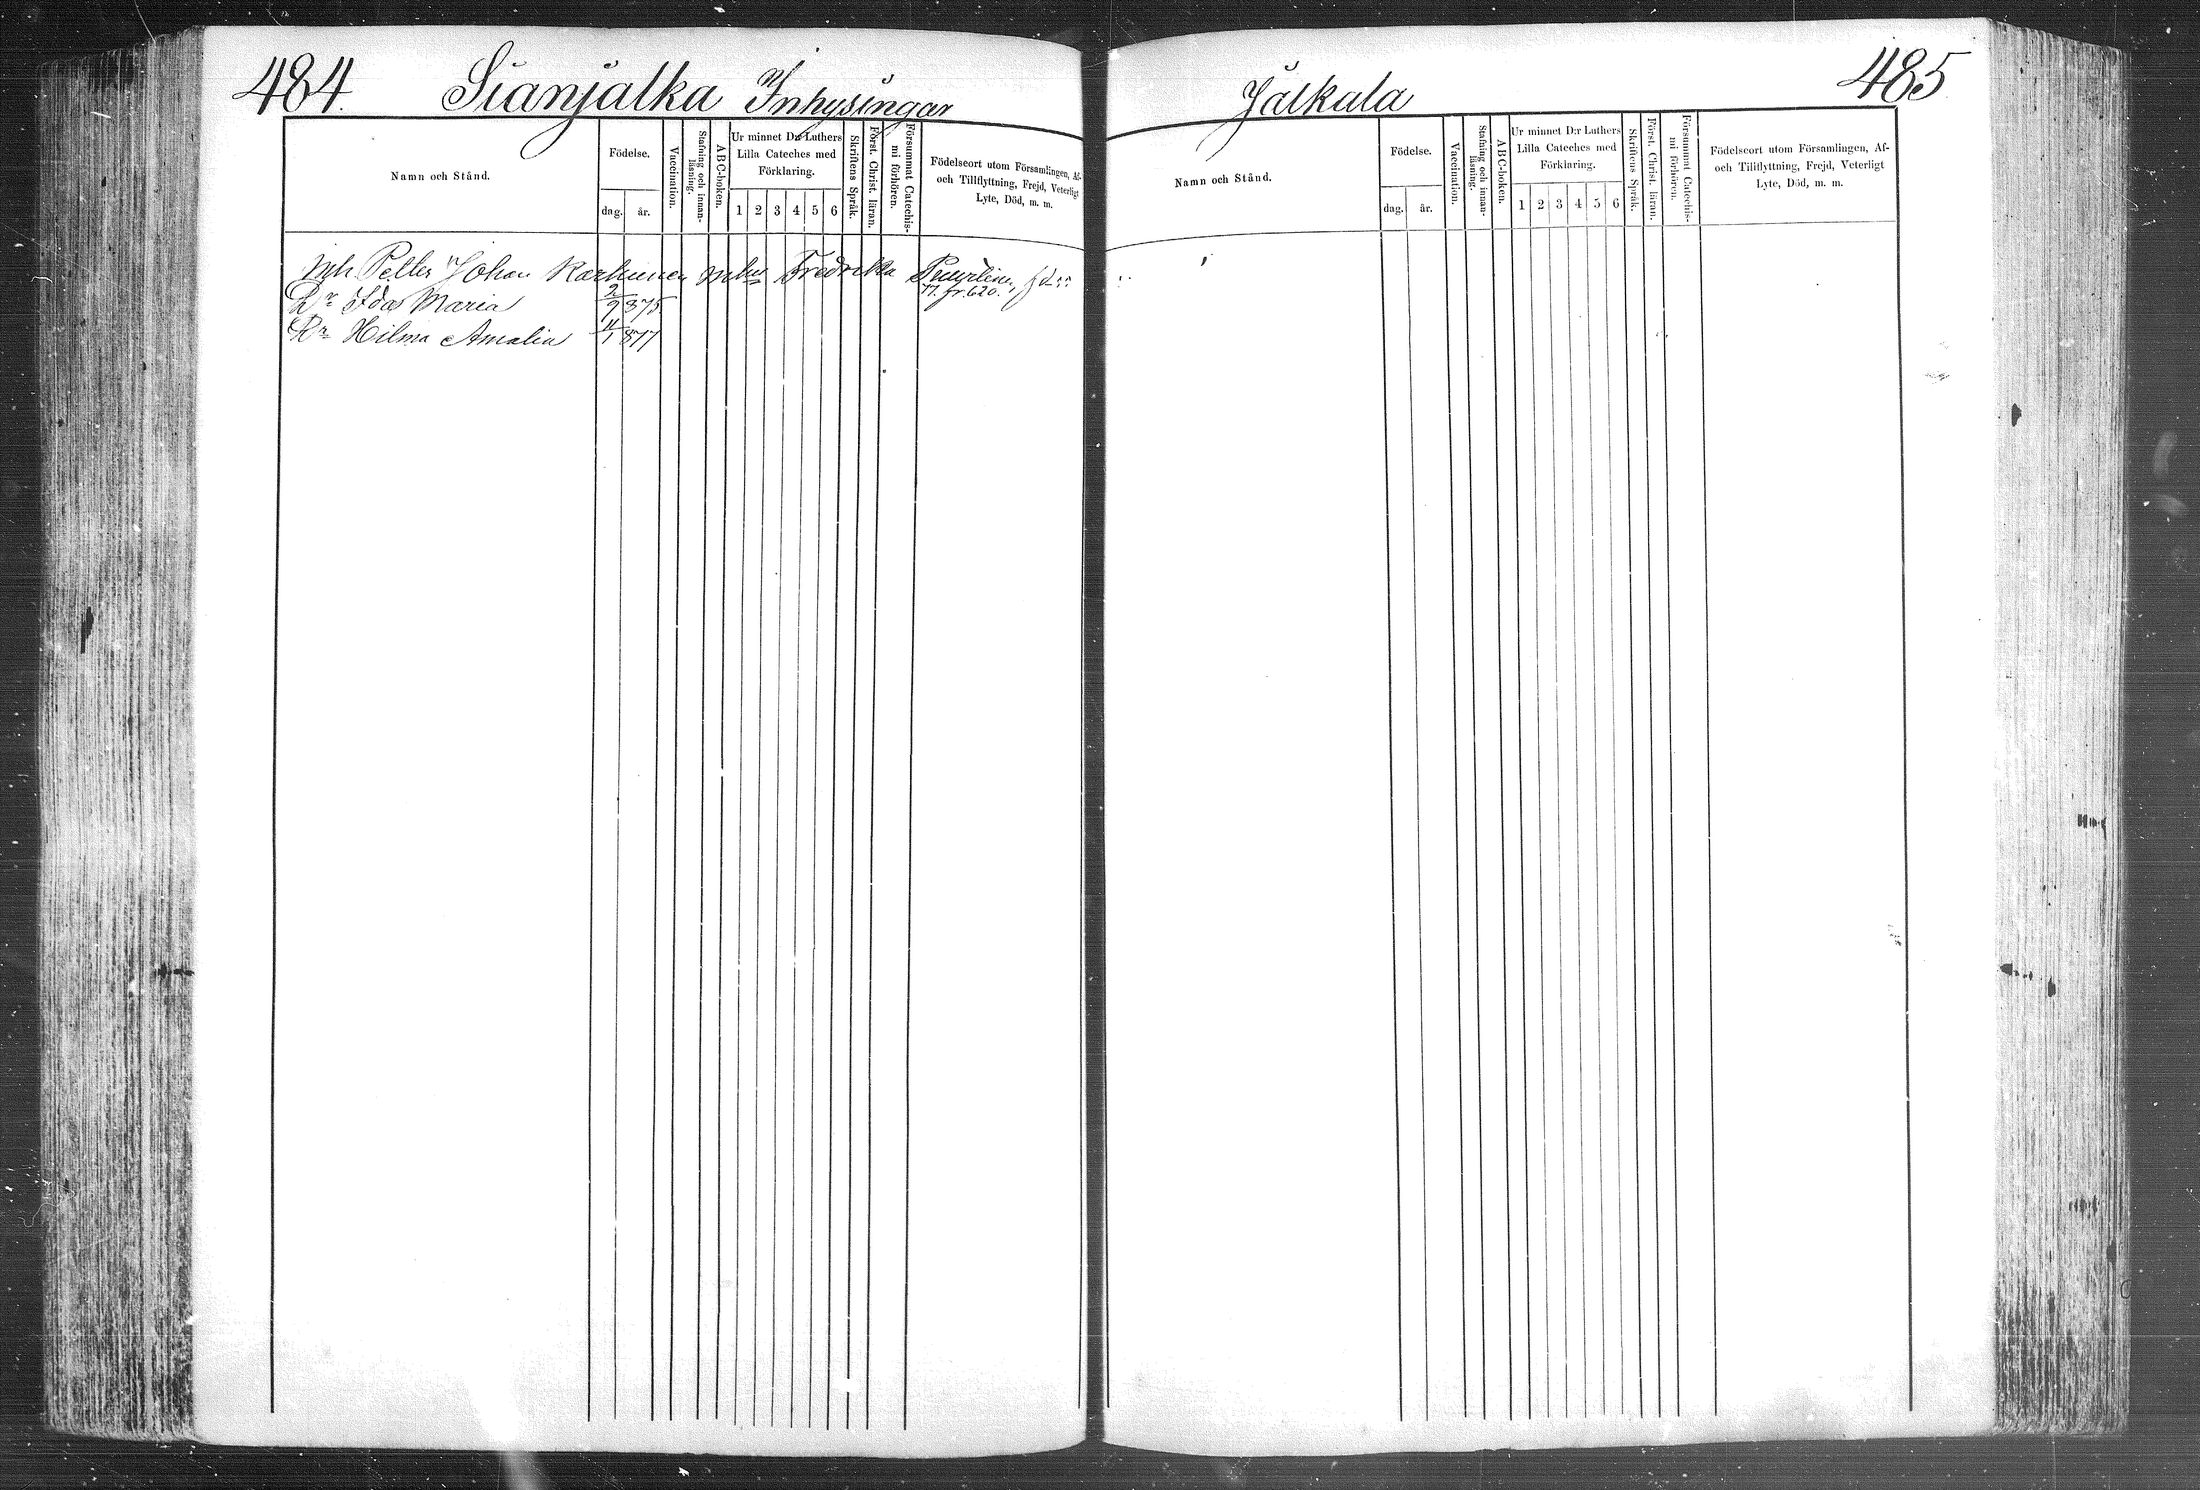 484.
Sianjalka Inhysingar
Namn och Stånd.
Födelse.
dag.
år.
Vaccination.
Stafning och innanläsning.
ABC-boken.
Ur minnet D:r Luthers
Lilla Cateches med
Förklaring.
1 2 3 4 5 6
Skriftens Språk.
Först. Christ. läran.
Försummat Catechismi förhören.
Födelseort utom Församlingen, Af-
och Tillflyttning, Frejd, Veterligt
Lyte, Död, m. m.
Petter Johan Karhunen Fredrika
77. fr. 620.
Dr Ida Maria 2/9 875
Dr Hilma Amalia 11/1 877
485
Jalkala
Namn och Stånd.
Födelse.
dag.
år.
Vaccination.
Stafning och innanläsning.
ABC-boken.
Ur minnet D:r Luthers
Lilla Cateches med
Förklaring.
1 2 3 4 5 6
Skriftens Språk.
Först. Christ. läran.
Försummat Catechismi förhören.
Födelseort utom Församlingen, Af-
och Tillflyttning, Frejd, Veterligt
Lyte, Död, m. m.